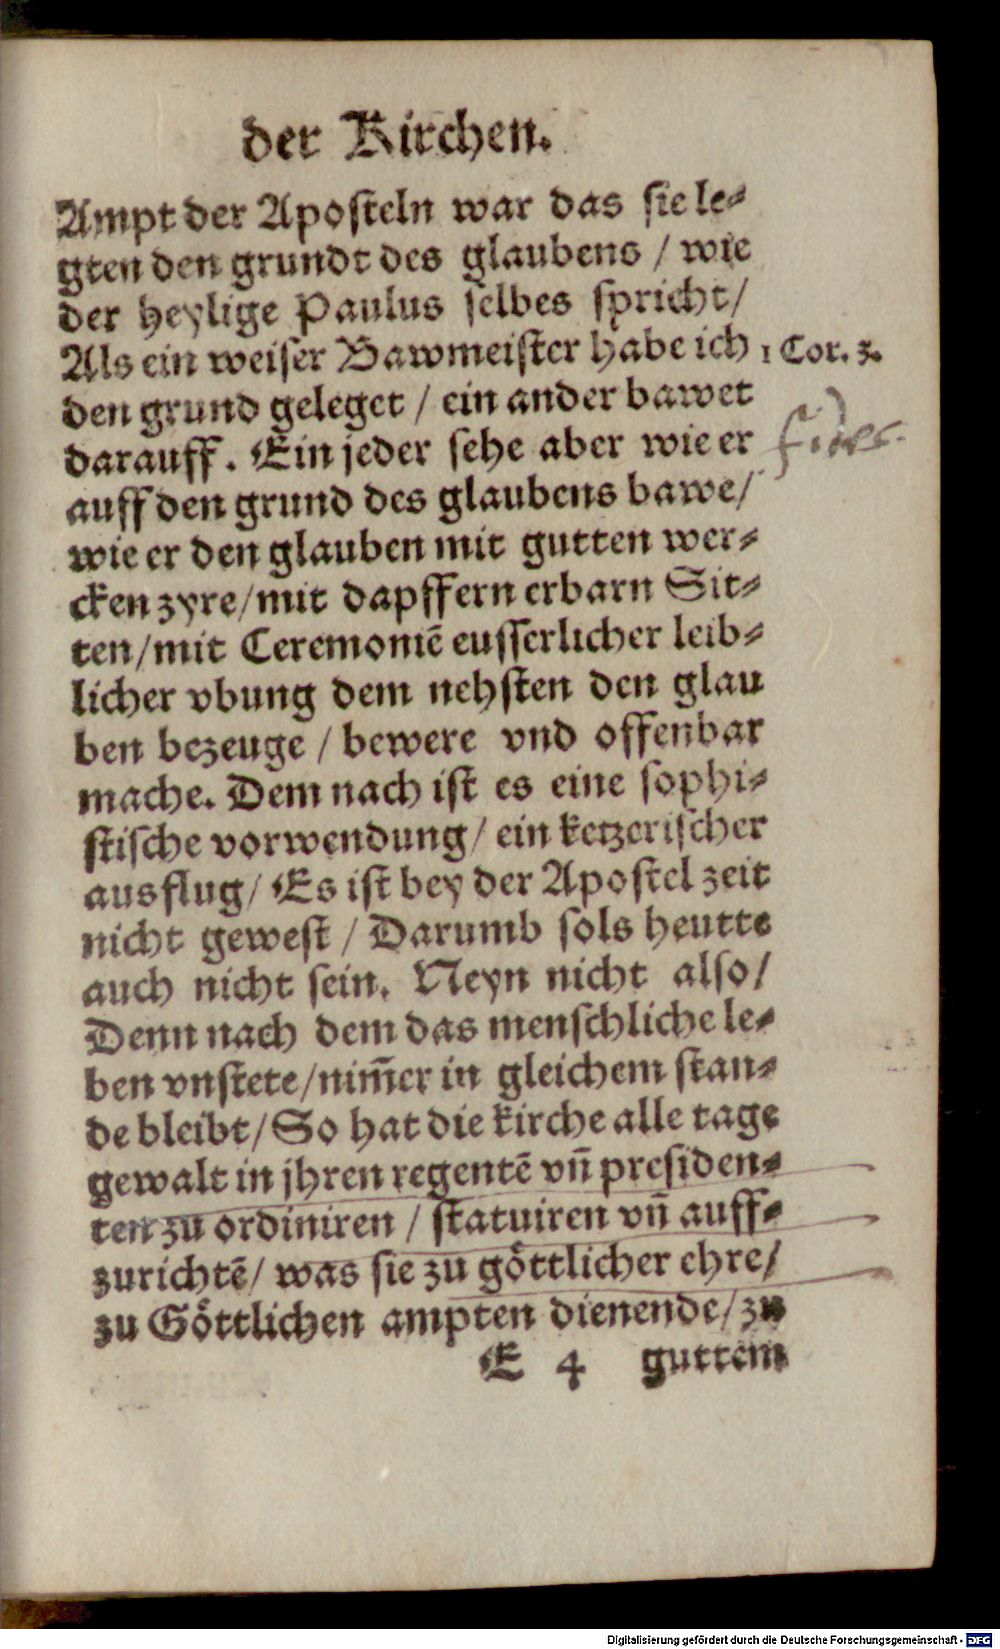 der Kirchen.
Ampt der Aposteln war das sie le⸗
gten den grundt des glaubens / wie
der heylige Paulus selbes spricht/
Als ein weiser Bawmeister habe ich
1 Cor. 3.
den grund geleget / ein ander bawet
darauff. Ein jeder sehe aber wie er
fides.
auff den grund des glaubens bawe/
wie er den glauben mit gutten wer⸗
cken zyre/mit dapffern erbarn Sit⸗
ten/mit Ceremoniē eusserlicher leib⸗
licher vbung dem nehsten den glau
ben bezeuge / bewere vnd offenbar
mache. Dem nach ist es eine sophi⸗
stische vorwendung/ ein ketzerischer
ausflug/ Es ist bey der Apostel zeit
nicht gewest / Darumb sols heutte
auch nicht sein. Neyn nicht also/
Denn nach dem das menschliche le⸗
ben vnstete/nim̄er in gleichem stan⸗
de bleibt/So hat die kirche alle tage
gewalt in jhren regentē vn̄ presiden⸗
ten zu ordiniren / statuiren vn̄ auff⸗
zurichtē/ was sie zu göttlicher ehre/
zu Göttlichen ampten dienende/zu
E 4 guttem
Digitalisierung gefördert durch die Deutsche Forschungsgemeinschaft - DFG